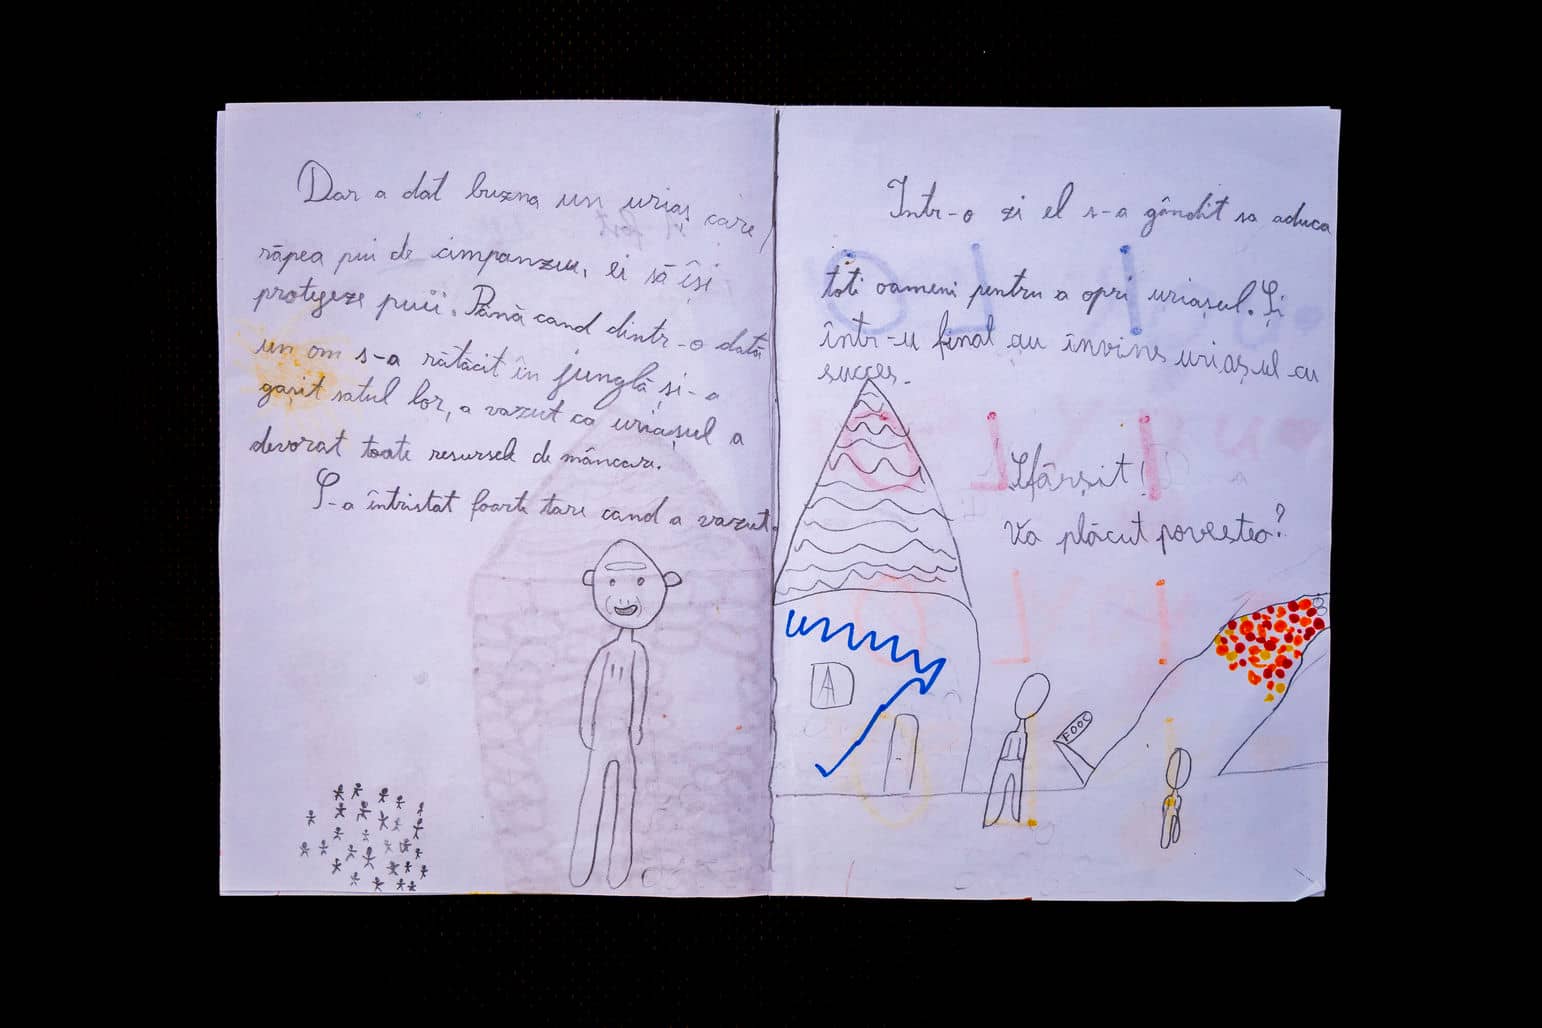 Dar a dat buzna un uriaș care
răpea pui de cimpanzeu, ei să își
protejeze puii. Până cand dintr-o dată
un om s-a rătăcit în junglă și-a
gasit satul lor, a vazut ca uriașul a
devorat toate resursele de mâncare.
S-a întristat foarte tare cand a vazut.
Intr-o zi el s-a gândit sa aduca
toti oameni pentru a opri uriașul. Și
într-u final au învins uriașul cu
succes.
Sfârșit!
Va plăcut povestea?
A